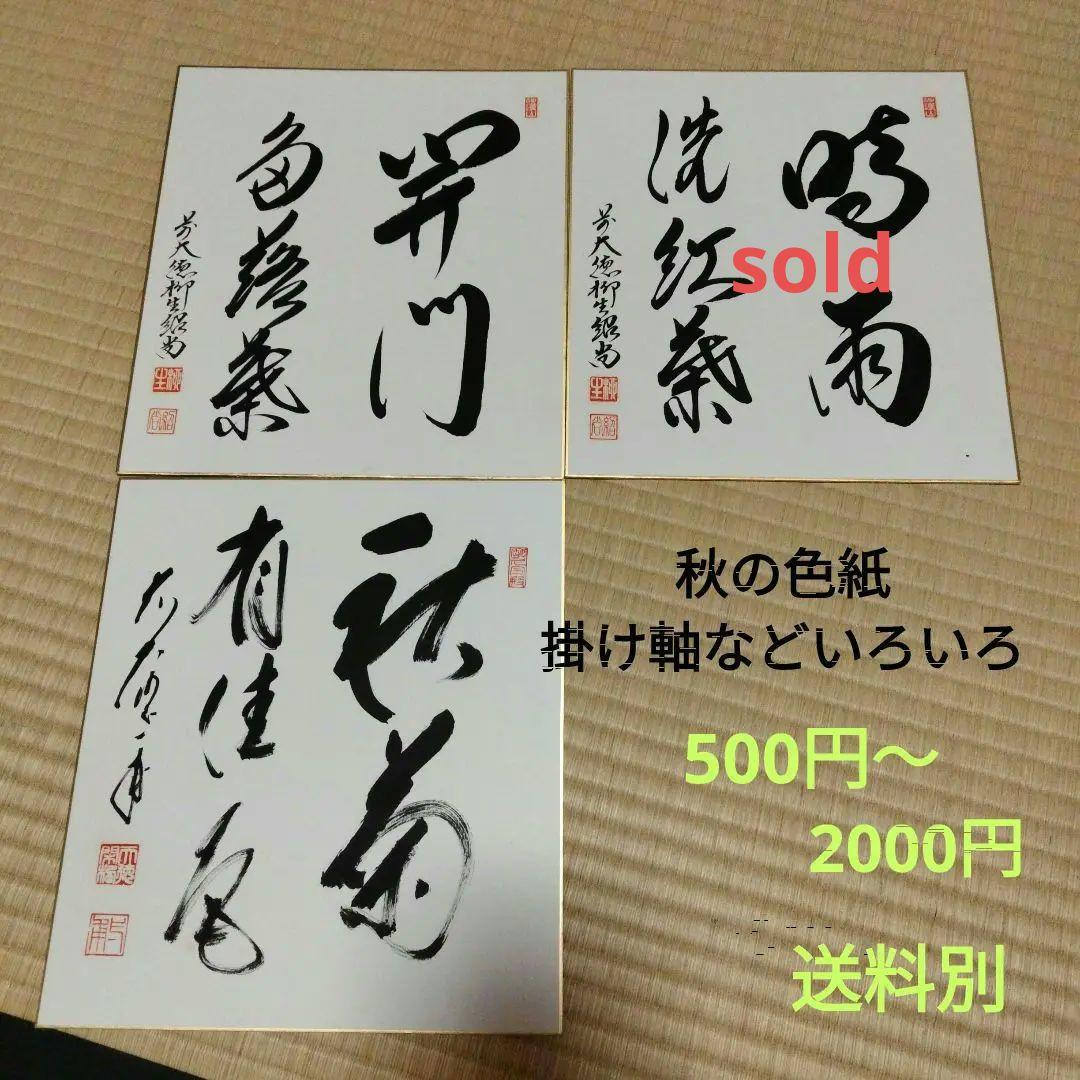 開門
多落葉
前大徳柳生紹尚
時雨
洗紅葉
前大徳柳生紹尚
sold
秋菊
有佳色
秋の色紙
掛け軸などいろいろ
500円～
2000円
送料別